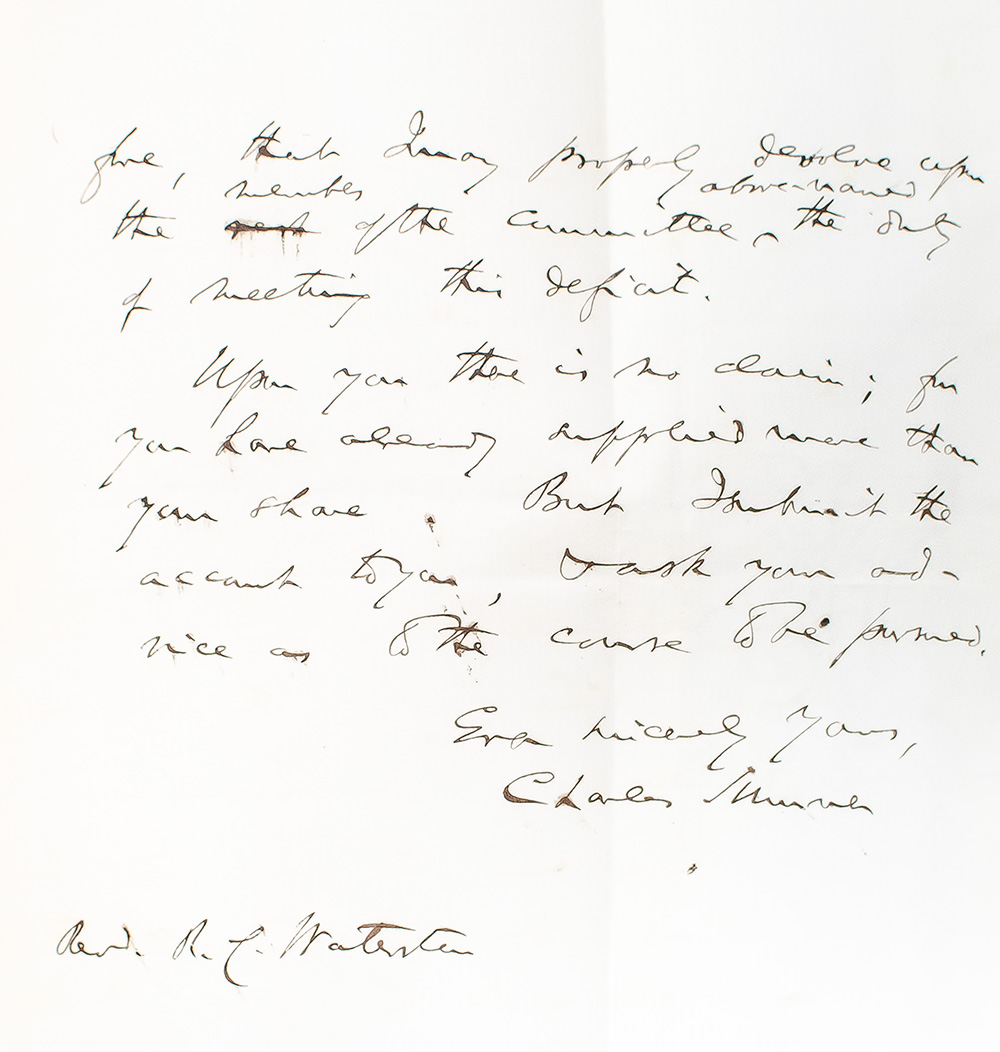 fore, that I may properly devolve upon
members above-named
the rest of the committee ‸ the duty
of meeting this deficit.
Upon you there is no claim; for
you have already supplied more than
your share. But I submit the
account to you, & ask your ad-
vice as to the course to be pursued.
Ever sincerely Yours,
Charles Sumner
Revd. R. C. Waterston